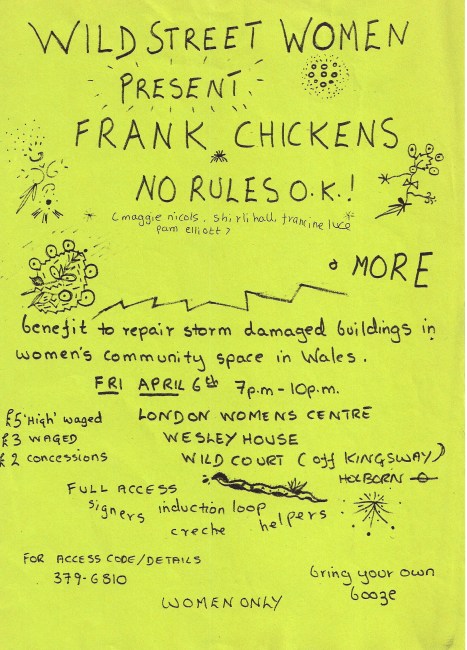 WILD STREET WOMEN
PRESENT
FRANK CHICKENS
NO RULES O.K.!
(maggie nicols. shirli hall francine luce
pam elliott?
& MORE
benefit to repair storm damaged buildings in
women's community space in Wales.
FRI APRIL 6th 7p.m - 10p.m.
£5 'High' waged LONDON WOMENS CENTRE
£3 WAGED WESLEY HOUSE
£2 concessions WILD COURT (off KINGSWAY)
HOLBORN
FULL ACCESS
signers induction loop helpers
creche
FOR ACCESS CODE/DETAILS
379-6810
bring your own
booze
WOMEN ONLY